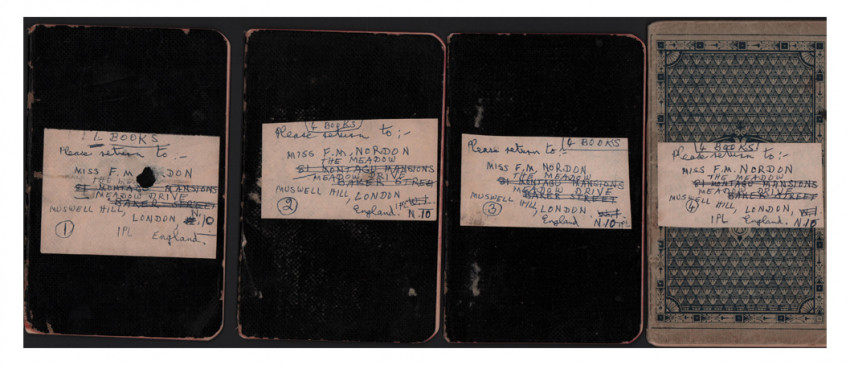 4 BOOKS
Please return to :-
MISS F.M. NORDON
THE
81 MONTAGU MANSIONS
MEADOW DRIVE
BAKER STREET
MUSWELL HILL,
LONDON N.10
1PL England.
1
(4 BOOKS)
Please return to :-
MISS F.M. NORDON
THE MEADOW
81 MONTAGU MANSIONS
MEADOW DRIVE
BAKER STREE
MUSWELL HILL, LONDON
1PL W.1
England. N.10
2
(4 BOOKS
Please return to :-
MISS F.M. NORDON
THE MEADOW
81 MONTAGU MANSIONS
MEADOW DRIVE
BAKER STREET
MUSWELL HILL,
LONDON, W.1
England N.10 1PL
3
(4 BOOKS)
Please return to :-
MISS F.M. NORDON
THE MEADOW
81 MONTAGU MANSIONS
MEADOW DRIVE
BAKER STREET
MUSWELL HILL,
LONDON, W.1
1PL England. N.10
4